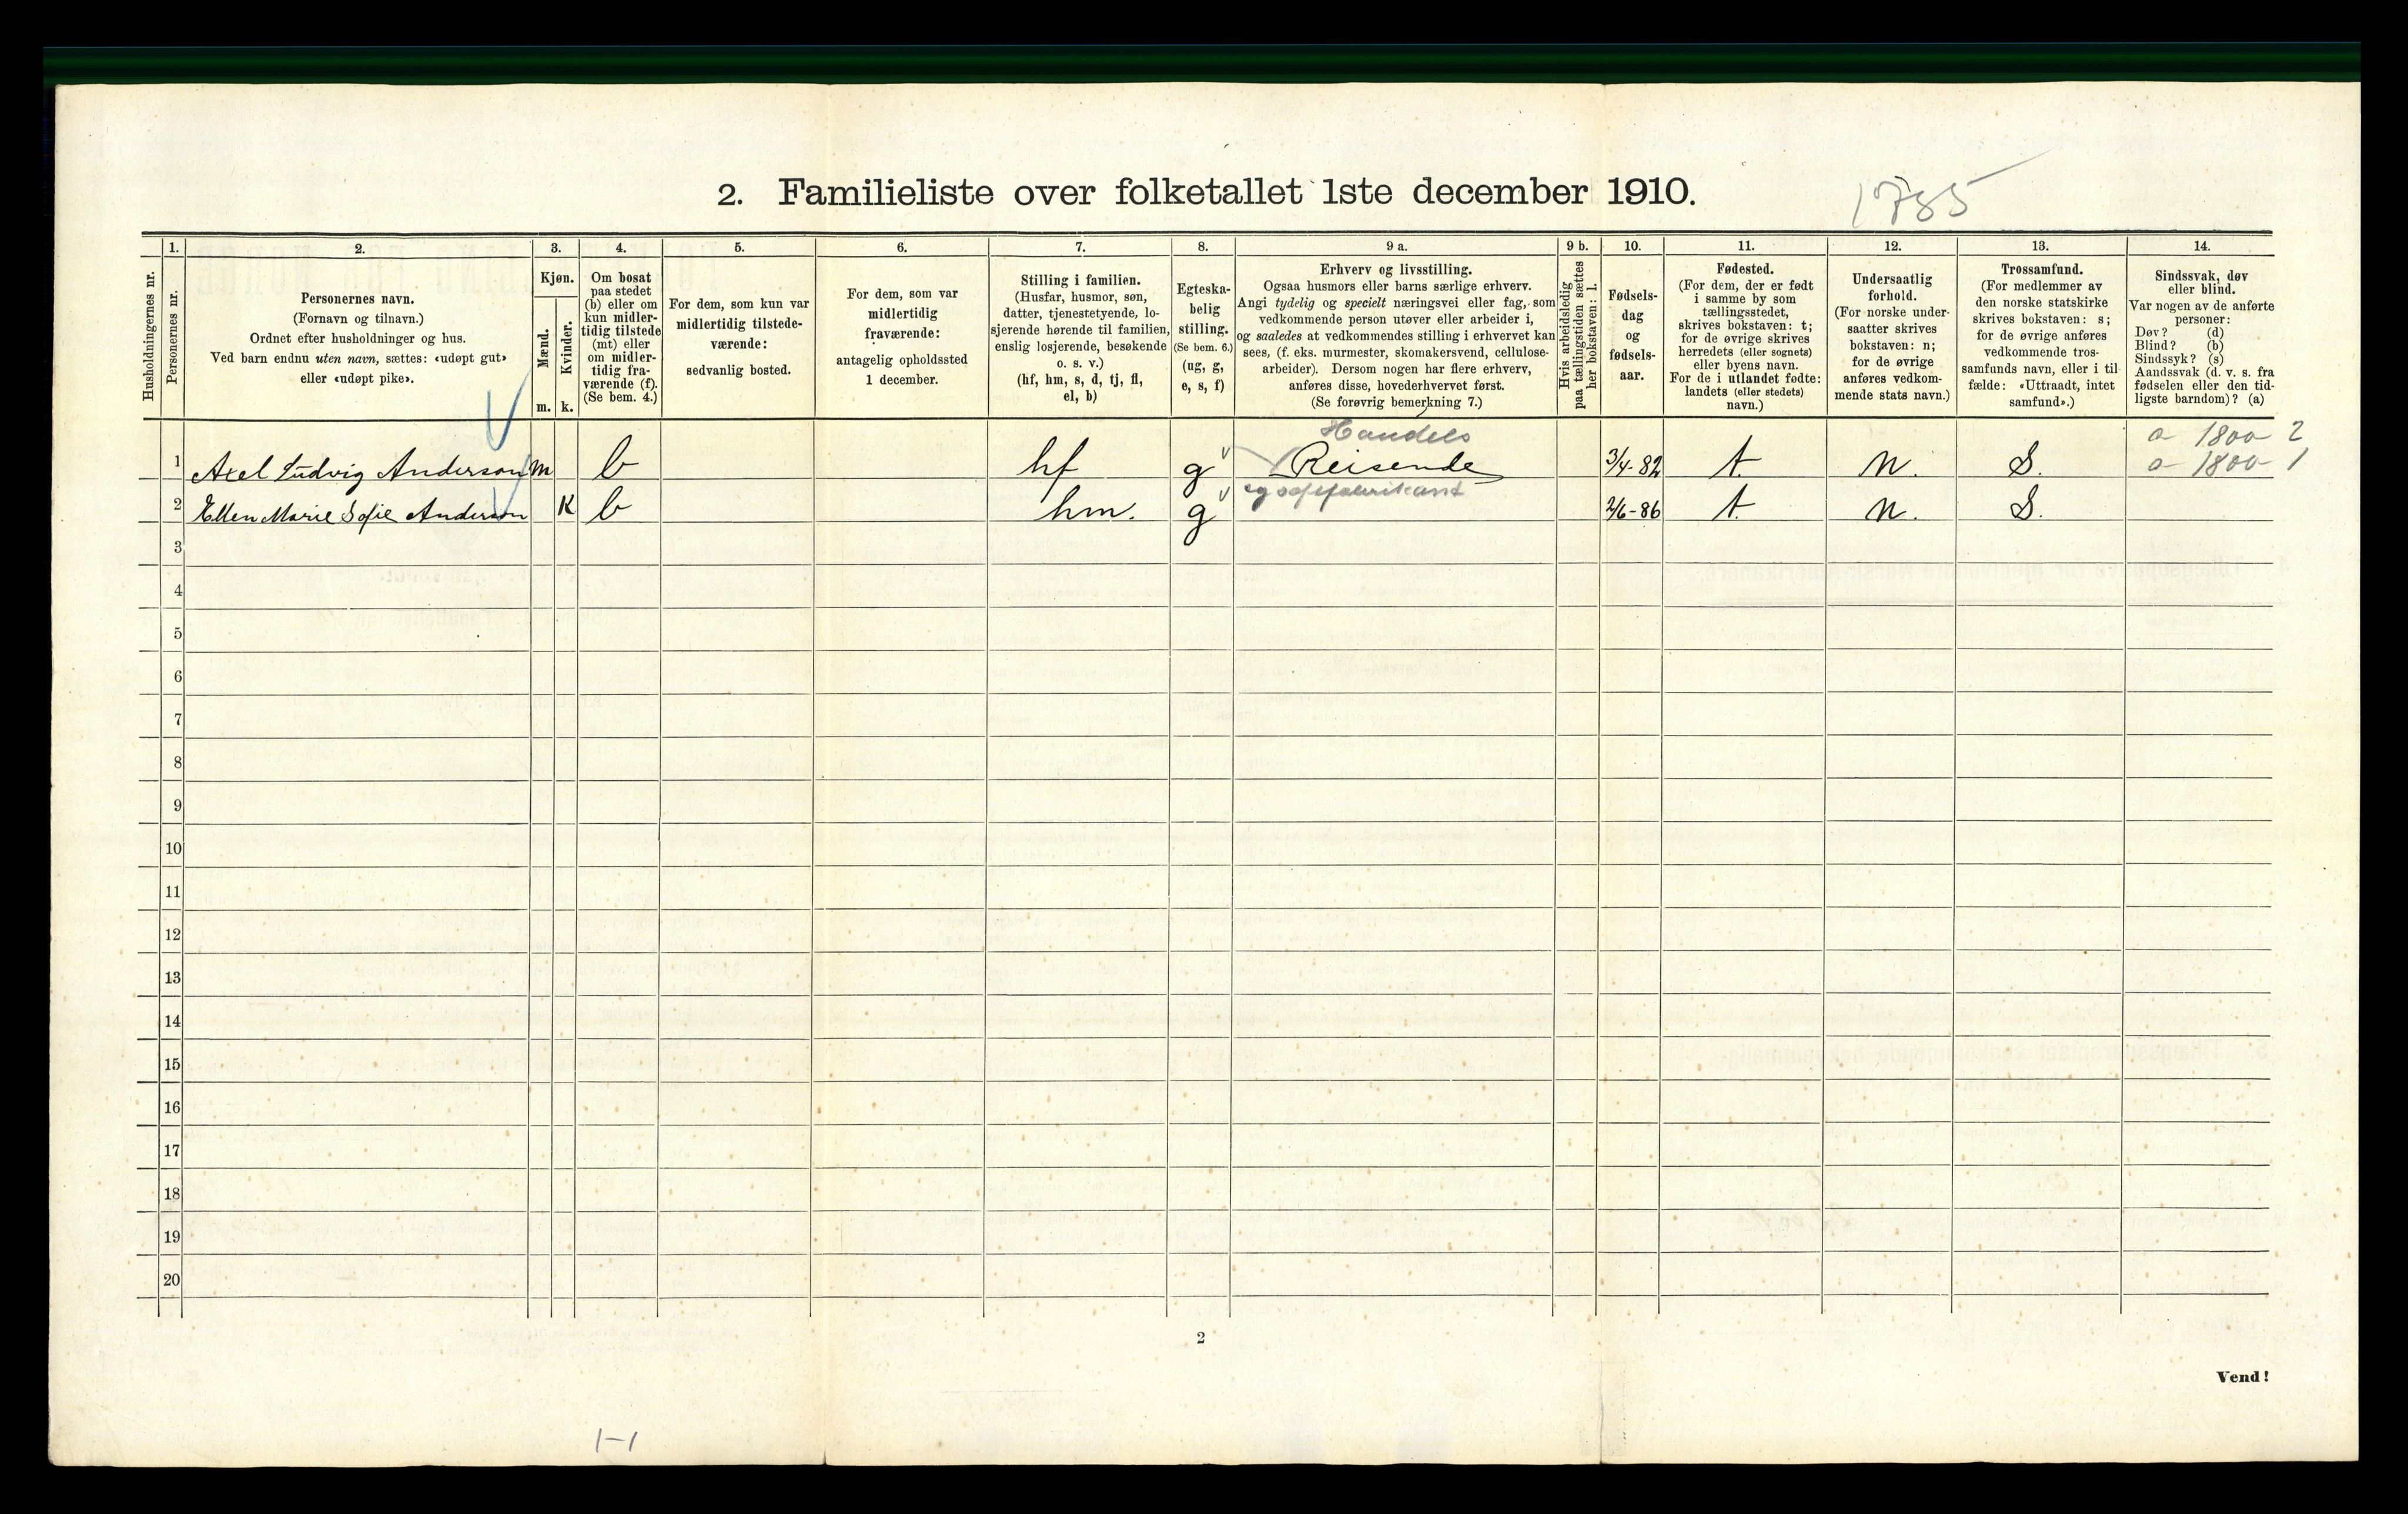 2. Familieliste over folketallet 1ste december 1910.
1785
1. 2. 3. 4. 5. 6. 7. 8. 9 a. 9 b. 10. 11. 12. 13. 14.
Husholdningernes nr.
Personernes nr.
Personernes navn.
(Fornavn og tilnavn.)
Ordnet efter husholdninger og hus.
Ved barn endnu uten navn, sættes: «udøpt gut»
eller «udøpt pike».
Kjøn.
Mænd.
Kvinder.
m. k.
Om bosat
paa stedet
(b) eller om
kun midler-
tidig tilstede
(mt) eller
om midler-
tidig fra-
værende (f).
(Se bem. 4.)
For dem, som kun var
midlertidig tilstede-
værende:
sedvanlig bosted.
For dem, som var
midlertidig
fraværende:
antagelig opholdssted
1 december.
Stilling i familien.
(Husfar, husmor, søn,
datter, tjenestetyende, lo-
sjerende hørende til familien,
enslig losjerende, besøkende
o. s. v.)
(hf, hm, s, d, tj, fl,
el, b)
Egteska-
belig
stilling.
(Se bem. 6.)
(ug, g,
e, s, f)
Erhverv og livsstilling.
Ogsaa husmors eller barns særlige erhverv.
Angi tydelig og specielt næringsvei eller fag, som
vedkommende person utøver eller arbeider i,
og saaledes at vedkommendes stilling i erhvervet kan
sees, (f. eks. murmester, skomakersvend, cellulose-
arbeider). Dersom nogen har flere erhverv,
anføres disse, hovederhvervet først.
(Se forøvrig bemerkning 7.)
Hvis arbeidsledig
paa tællingstiden sættes
her bokstaven: l.
Fødsels-
dag
og
fødsels-
aar.
Fødested.
(For dem, der er født
i samme by som
tællingsstedet,
skrives bokstaven: t;
for de øvrige skrives
herredets (eller sognets)
eller byens navn.
For de i utlandet fødte:
landets (eller stedets)
navn.)
Undersaatlig
forhold.
(For norske under-
saatter skrives
bokstaven: n;
for de øvrige
anføres vedkom-
mende stats navn.)
Trossamfund.
(For medlemmer av
den norske statskirke
skrives bokstaven: s;
for de øvrige anføres
vedkommende tros-
samfunds navn, eller i til-
fælde: «Uttraadt, intet
samfund».)
Sindssvak, døv
eller blind.
Var nogen av de anførte
personer:
Døv? (d)
Blind? (b)
Sindssyk? (s)
Aandssvak (d. v. s. fra
fødselen eller den tid-
ligste barndom)? (a)
Handels a 1800 2
1 Axel Ludvig Anderson m b hf g Reisende 3/4-82 t. n. S. a 1800 1
2 Ellen Marie Sofie Anderson K b hm. g 2/6-86 t. n. S.
3
4
5
6
7
8
9
10
11
12
13
14
15
16
17
18
19
20
2
Vend!
1-1